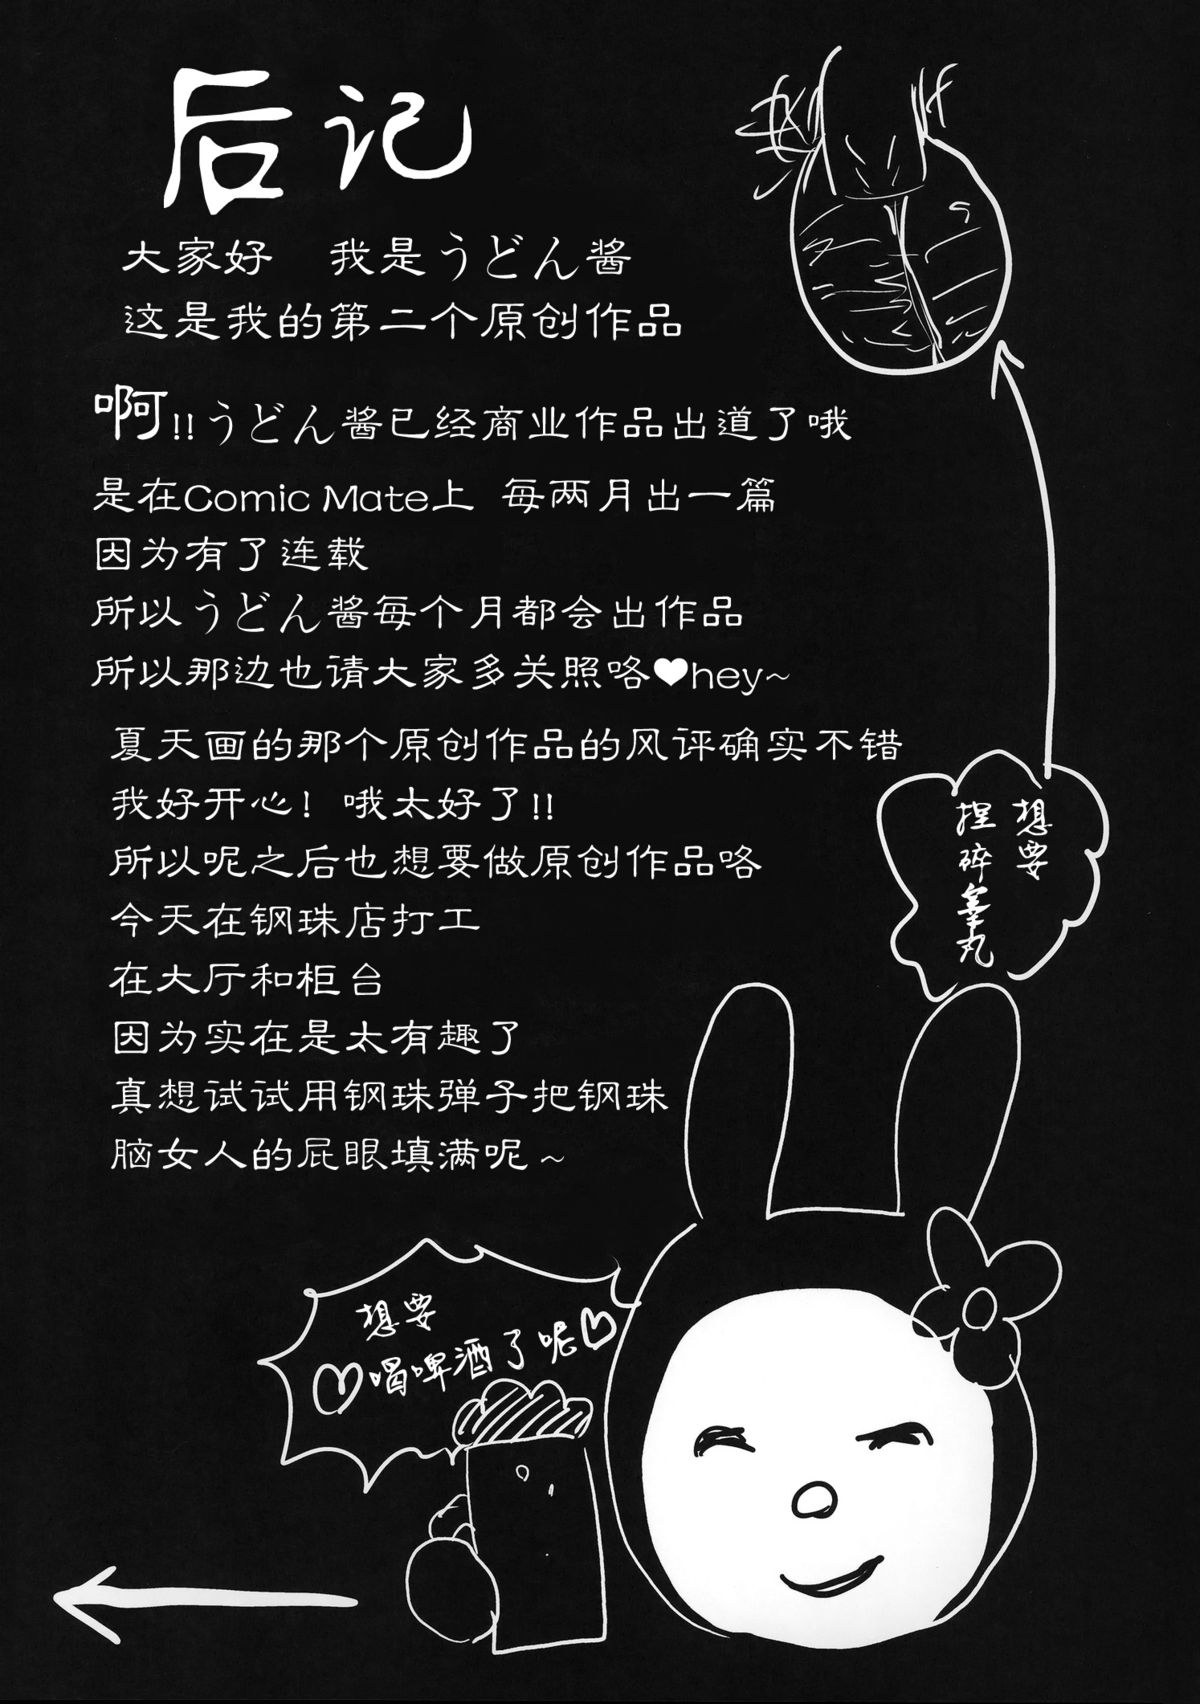 后记
大家好　我是うどん酱
这是我的第二个原创作品
啊!!うどん酱已经商业作品出道了哦
是在Comic Mate上 每两月出一篇
因为有了连载
所以うどん酱每个月都会出作品
所以那边也请大家多关照咯♥hey~
夏天画的那个原创作品的风评确实不错
我好开心！哦太好了!!
所以呢之后也想要做原创作品咯
今天在钢珠店打工
在大厅和柜台
因为实在是太有趣了
真想试试用钢珠弹子把钢珠
脑女人的屁眼填满呢~
想要
捏碎睾丸
想要
♡喝啤酒了呢♡